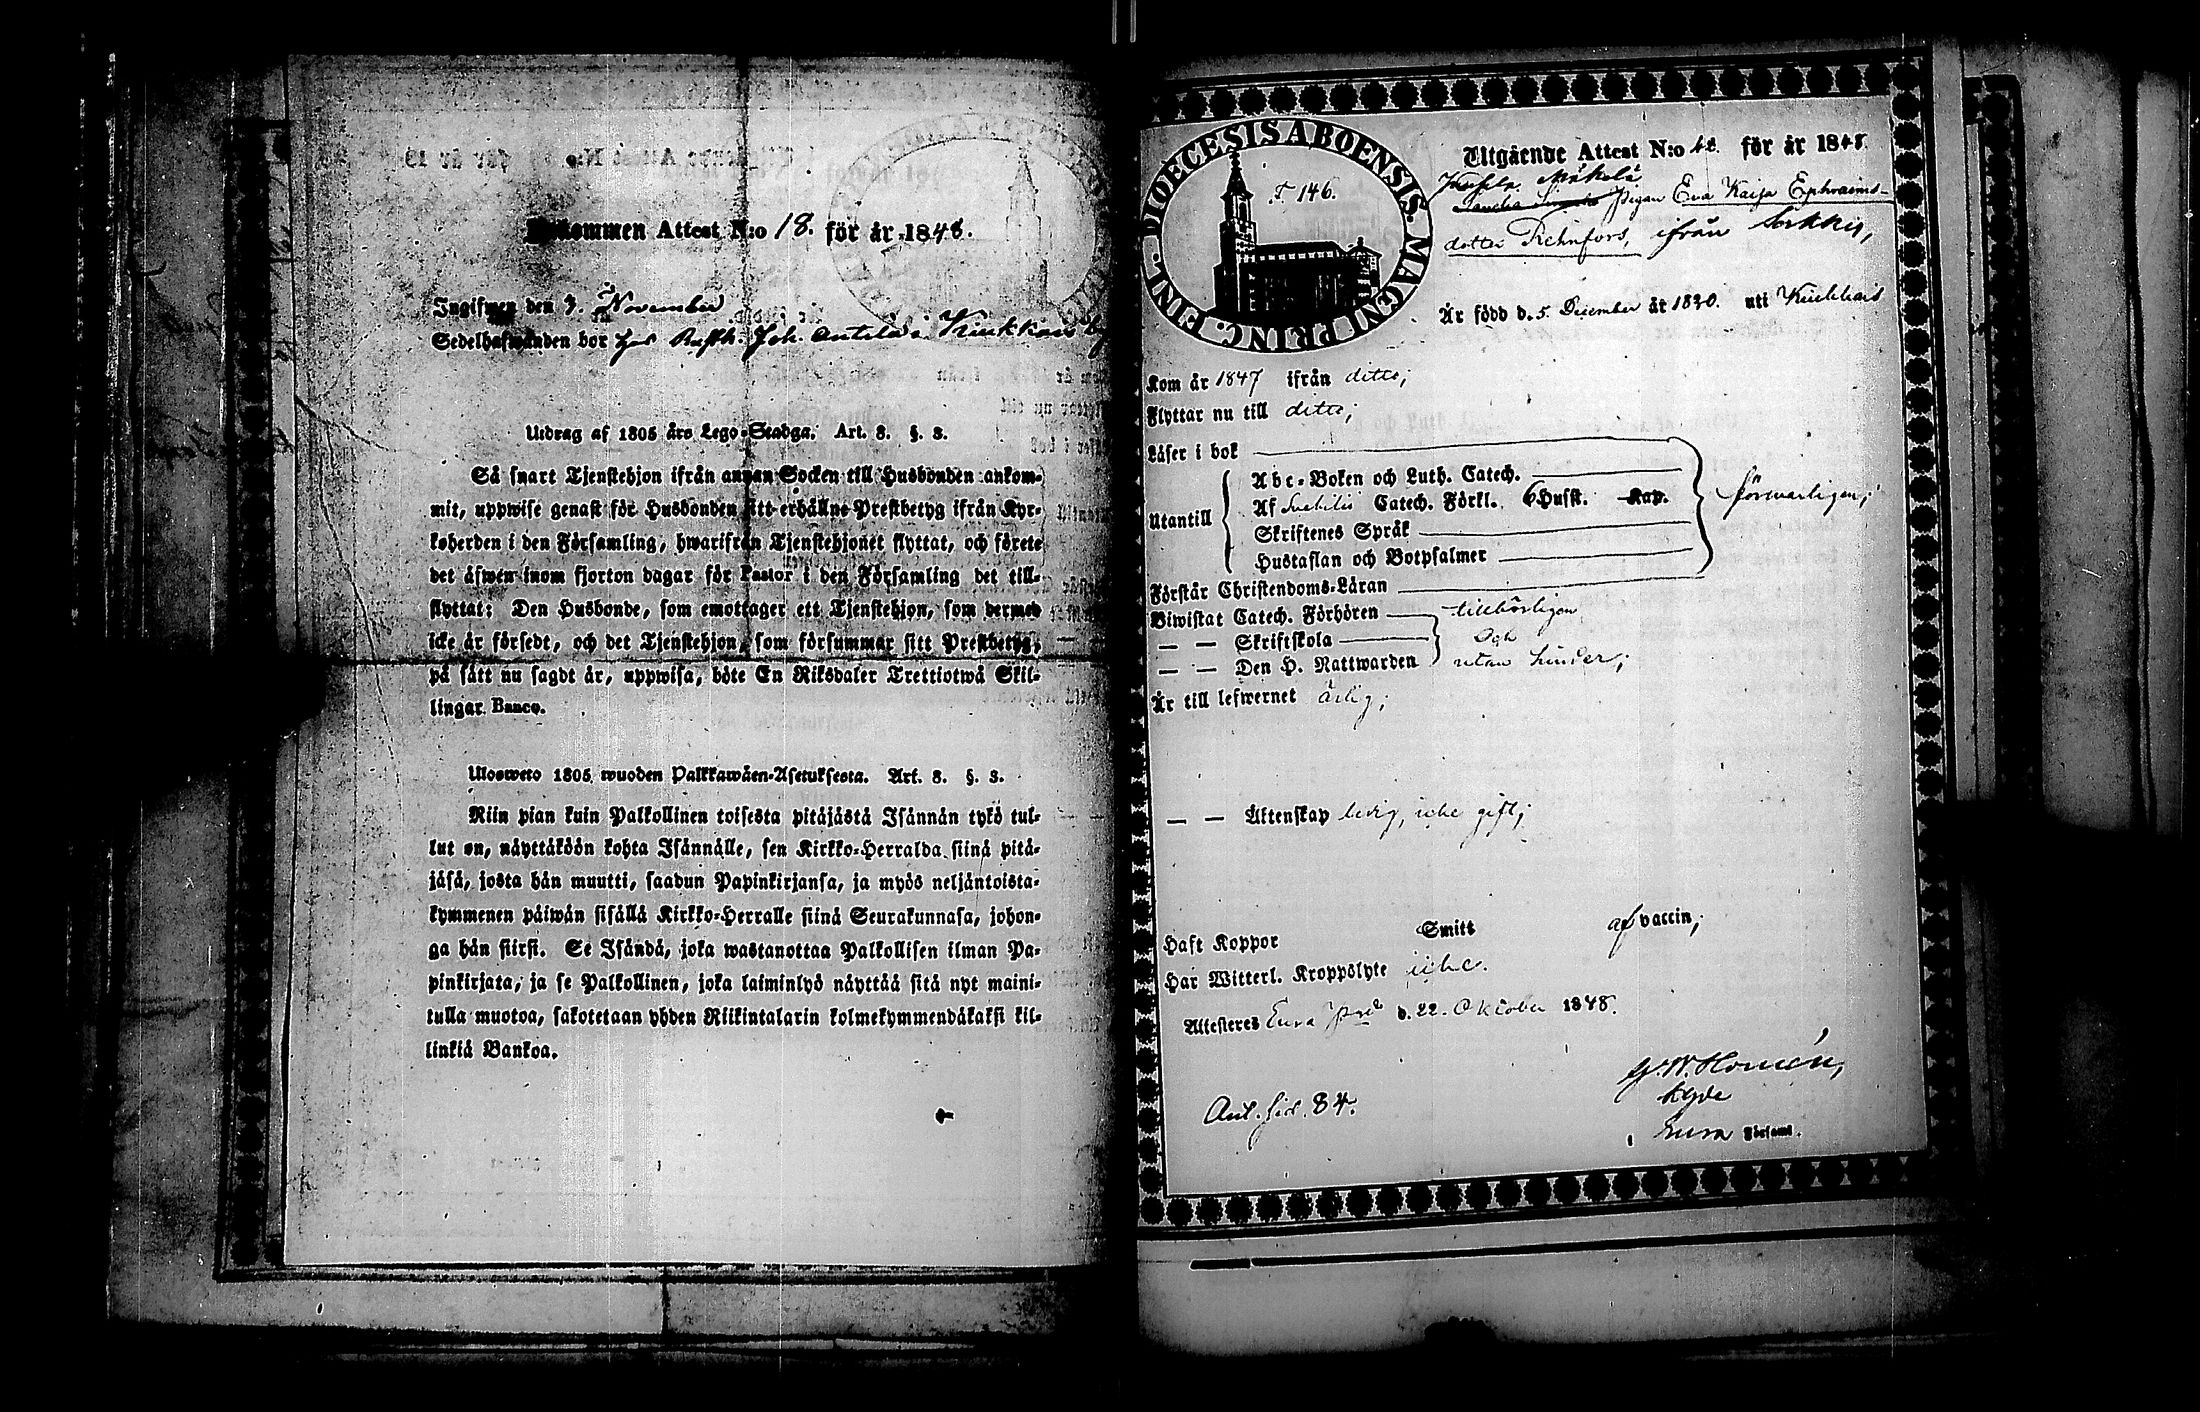 kommen Attest N:o 18. för år 1848.
Ingifwen den 9. November
Sedelhafwanden bor hos Rusth. Joh. Antila i Kiukkais by
Utdrag af 1805 års Lego-Stadga. Art. 8. §. 3.
Så snart Tjenstehjon ifrån annan Socken till Husbonden ankom-
mit, uppwise genast för Husbonden sitt erhållne Prestbetyg ifrån Kyr-
koherden i den Församling, hwarifrån Tjenstehjonet flyttat, och förete
det äfwen inom fjorton dagar för Pastor i den Församling det till-
flyttat: Den Husbonde, som emottager ett Tjenstehjon, som dermed
icke är försedt, och det Tjenstehjon, som försummar sitt Prestbetyg,
på sätt nu sagdt är, uppwisa, böte En Riksdaler Trettiotwå Skil-
lingar Banco.
Ulosweto 1805 wuoden Palkkawäen-Asetuksesta. Art. 8. §. 3.
Niin pian kuin Palkollinen toisesta pitäjästä Isännän tykö tul-
lut on, näyttäköön kohta Isännälle, sen Kirkko-Herralda siinä pitä-
jäsä, josta hän muutti, saadun Papinkirjansa, ja myös neljäntoista-
kymmenen päiwän sisällä Kirkko-Herralle siinä Seurakunnasa, johon-
ga hän siirsi. Se Isändä, joka wastanottaa Palkollisen ilman Pa-
pinkirjata, ja se Palkollinen, joka laiminlyö näyttää sitä nyt maini-
tulla muotoa, sakotetaan yhden Riikintalarin kolmekymmendäkaksi kil-
linkiä Bankoa.
DIOECESIS ABOENSIS MAGNI PRINC. FINL.
T 146.
Utgående Attest N:o 42. för år 1848.
Mäkelä
Pigan Eva Kaisa Ephraims-
dotter Rehnfors, ifrån Sorkkis,
Är född d. 5. December år 1820. uti Kiukkais
Kom år 1847 ifrån ditto;
Flyttar nu till ditto;
Läser i bok
Utantill
Abc-Boken och Luth. Catech.
Af Svebilii Catech. Förkl. 6 Husst. Kap.
Skriftenes Språk
Hustaflan och Botpsalmer
försvarligen;
Förstår Christendoms-Läran
Biwistat Catech. Förhören tillbörligen
— — Skriftskola och
— — Den H. Nattwarden utan hinder;
Är till lefwernet ärlig;
— — Äktenskap ledig, icke gift;
Haft Koppor Smitt af vaccin;
Har Witterl. Kroppslyte icke.
Attesteres Eura Prgd d. 22. Oktober 1848.
G. W. Homén,
Khde
i Eura Församl.
Ant. sid. 84.